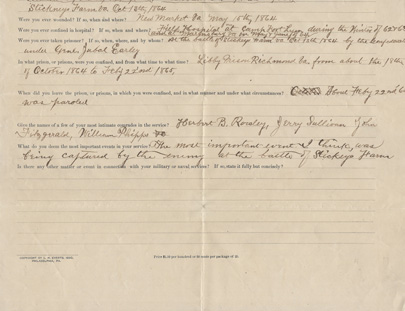 Stickneys Farm Va Oct 13th, 1864
Were you ever wounded? If so, when and where? New Market Va May 15th, 1864
Were you ever confined in hospital? If so, when and where? Field Hospital at Camp during the Winter of
Were you ever taken prisoner? If so, when, where, and by whom? At the battle of Stickneys Farm Va Oct 13th 1864 by the
under Genl. Jubal Early
In what prison, or prisons, were you confined, and from what time to what time? Libby Prison Richmond Va from about the 18th
of October 1864 to Feby 22nd 1865,
When did you leave the prison, or prisons, in which you were confined, and in what manner and under what circumstances? Feby 22nd
was paroled
Give the names of a few of your most intimate comrades in the service? Herbert B. Rossley, Jerry Sullivan John
Fitzgerald, William Phipps
What do you deem the most important events in your service? The most important event I think, was
being captured by the enemy at the battle of Stickneys Farm
Is there any other matter or event in connection with your military or naval services? If so, state it fully but concisely?
PHILADELPHIA, PA.